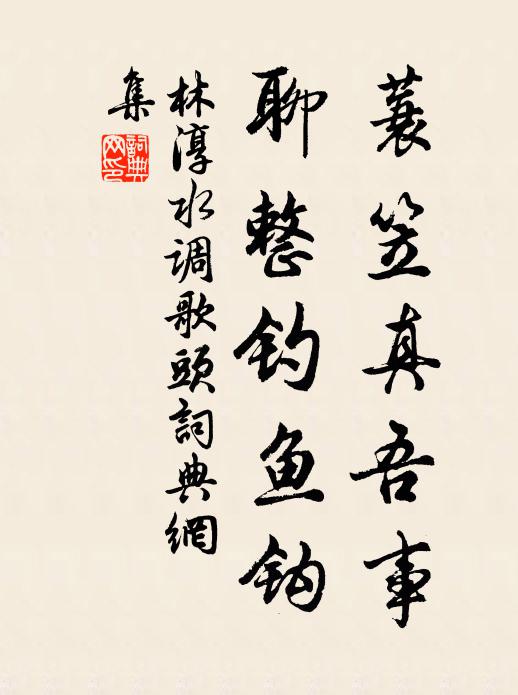 蓑笠真吾事
聊整钓鱼钩
林淳水调歌頭詞典網
集
詞典网印